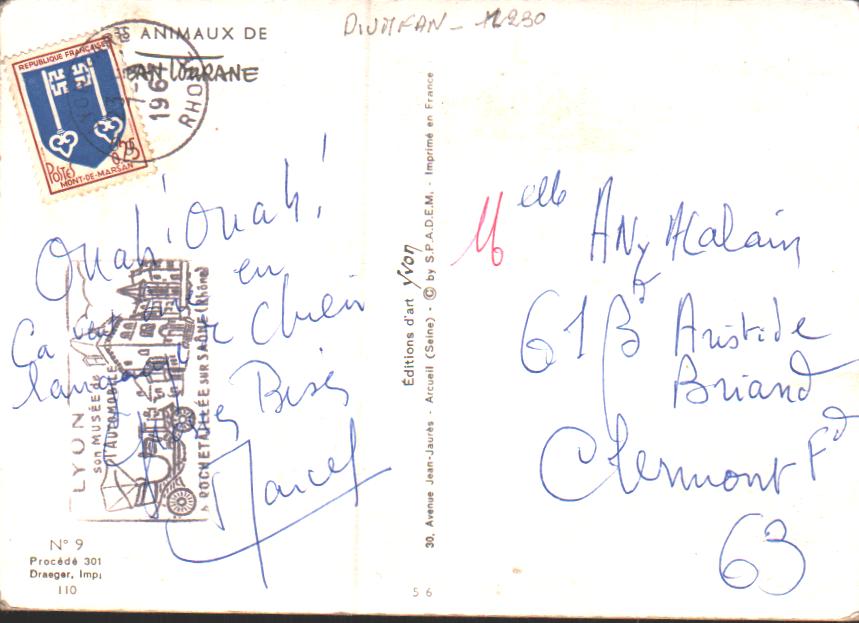 DIUMFAN - 11230
ES ANIMAUX DE
JEAN TOURANE
REPUBLIQUE FRANÇAISE
0,25
POSTES
MONT-DE-MARSAN
1967
RHONE
Ouah! Ouah!
Ça veut dire en
langage Chien
Grosses Bises
Marcel
LYON
son MUSÉE de
l'AUTOMOBILE
A ROCHETAILLÉE SUR SAÔNE (Rhône)
N° 9
Procédé 301
Draeger, Imp;
110
Éditions d'art Yvon
30, Avenue Jean-Jaurès - Arcueil (Seine) - © by S.P.A.D.E.M. - Imprimé en France
56
Melle Any Malain
61 Bd Aristide
Briand
Clermont Fd
63